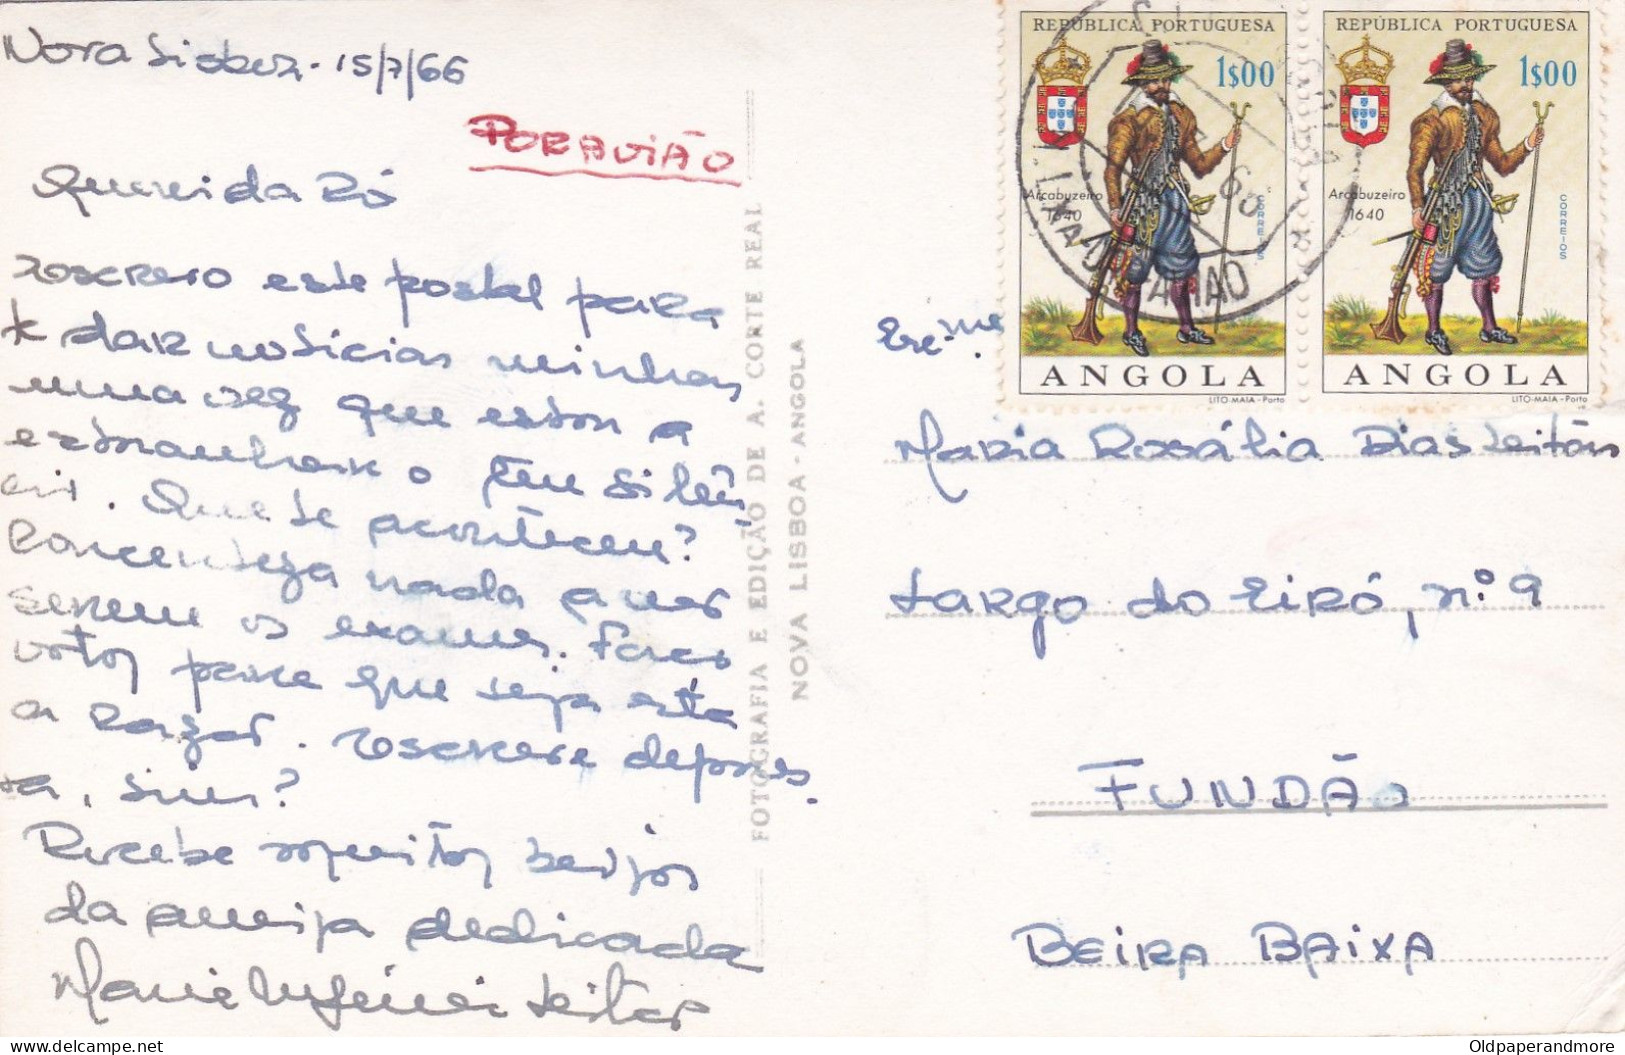 Nova Lisboa - 15/7/66
POR AVIÃO
Querida Ró
escrevo este postal para
te dar notícias minhas
uma vez que estou a
estranhar o teu silên
cio. Que te aconteceu?
nada a não
serem os exames. Faço
votos para que seja esta
a razão. escreve depres
sa, sim?
Recebe muitos beijos
da amiga dedicada
Maria Leitão
FOTOGRAFIA E EDIÇÃO DE A. CORTE REAL
NOVA LISBOA - ANGOLA
REPÚBLICA PORTUGUESA
1$00
Arcabuzeiro
1640
CORREIOS
ANGOLA
LITO-MAIA - Porto
REPÚBLICA PORTUGUESA
1$00
Arcabuzeiro
1640
CORREIOS
ANGOLA
LITO-MAIA - Porto
Exma
Maria Rosália Dias Leitão
Largo do Eiró, n.º 9
FUNDÃO
BEIRA BAIXA
Oldpaperandmore
delcampe.net